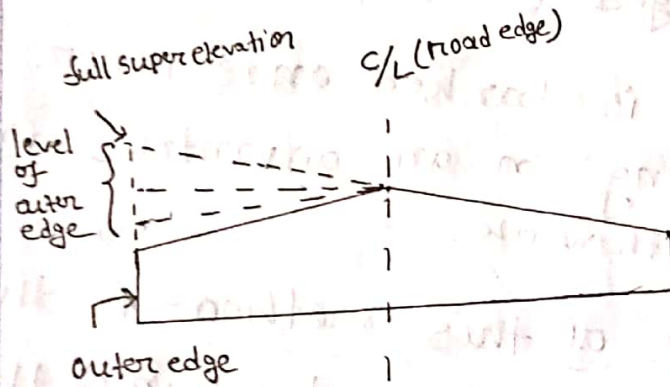 full superelevation
C/L (road edge)
level
of
outer
edge
outer edge